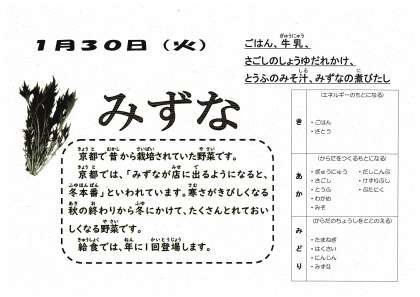 1月30日（火）
ごはん、牛乳、
さごしのしょうゆだれかけ、
とうふのみそ汁、みずなの煮びたし
みずな
京都で昔から栽培されていた野菜です。
京都では、「みずなが店に出るようになると、
冬本番」といわれています。寒さがきびしくなる
秋の終わりから冬にかけて、たくさんとれておい
しくなる野菜です。
給食では、年に1回登場します。
き
(エネルギーのもとになる)
・ごはん
・さとう
あか
(からだをつくるもとになる)
・ぎゅうにゅう ・だしこんぶ
・さごし ・けずりぶし
・とうふ ・ぶたにく
・わかめ
・みそ
みどり
(からだのちょうしをととのえる)
・たまねぎ
・はくさい
・にんじん
・みずな